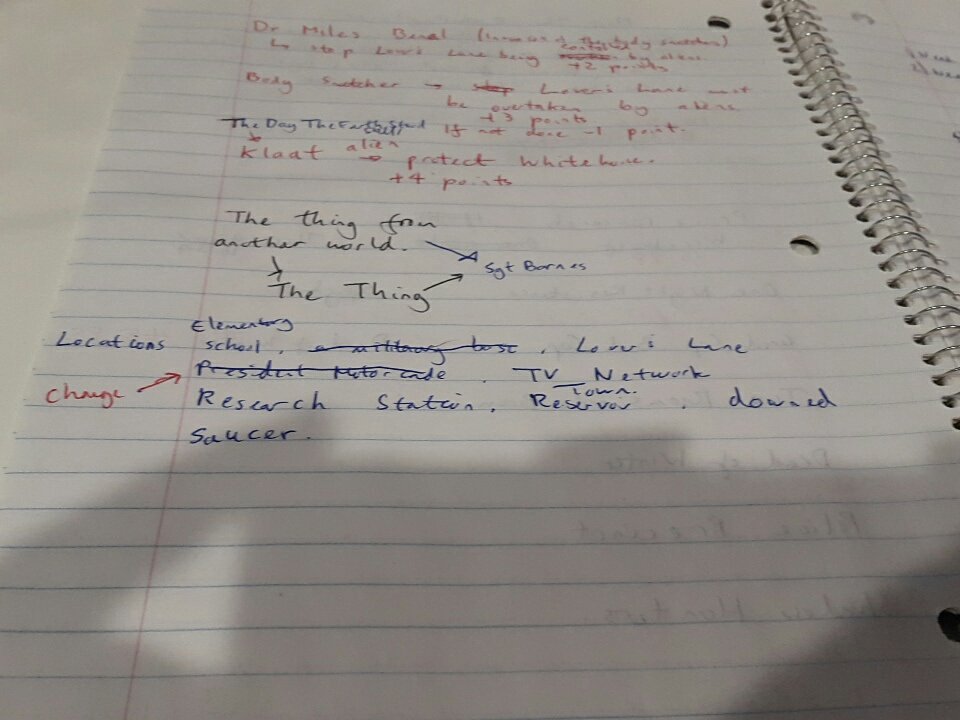 Dr Miles Benal (Invasion of the body snatchers)
↳ stop Lover's Lane being controlled by aliens
+2 points
Body Snatcher → stop Lover's Lane must
be overtaken by aliens
+3 points
The Day The Earth Stood Still If not done -1 point.
Klaat alien → protect Whitehouse.
+4 points
The thing from
another world.
Sgt Barnes
The Thing
Elementary
Locations school, a military base, Lover's Lane
President Motorcade, TV Network
Change
Town
Research Station, Reservor, downed
saucer.